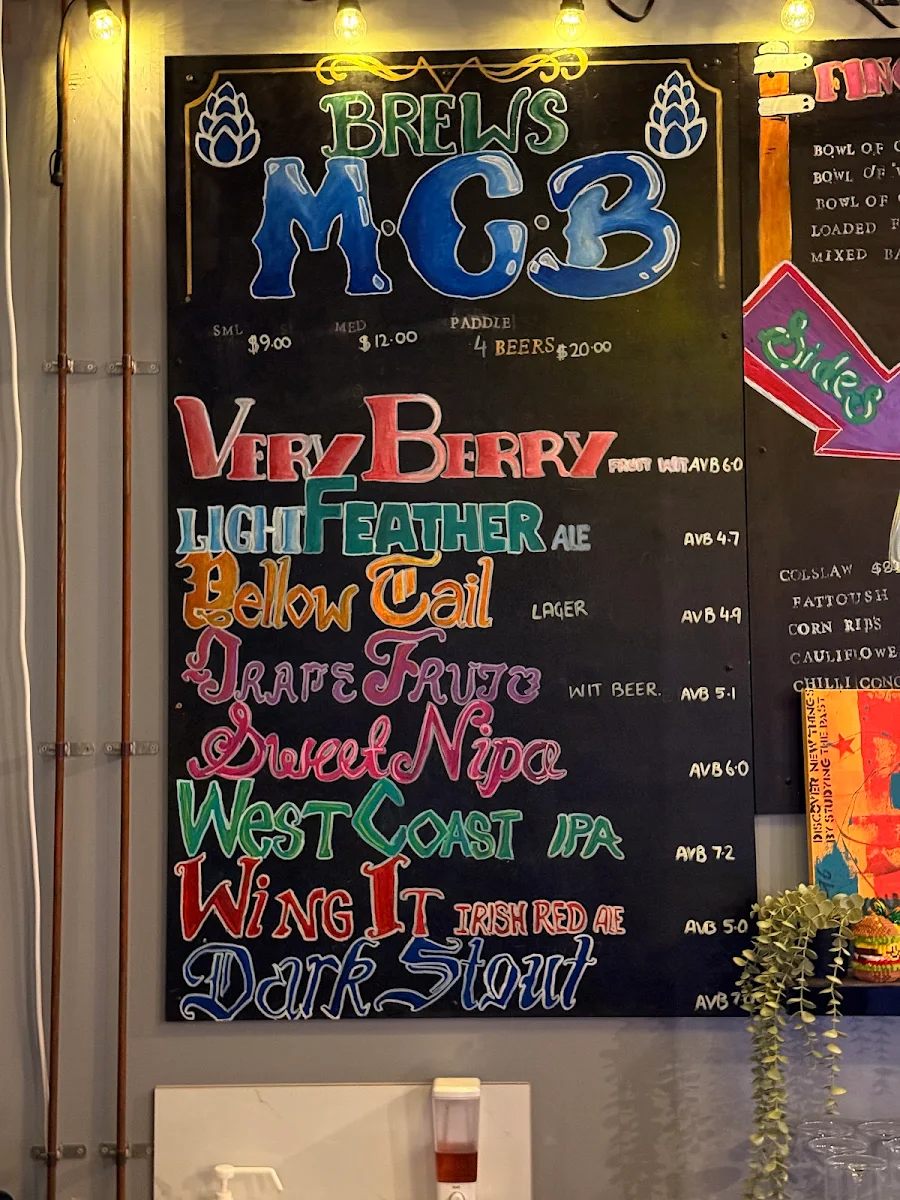 BREWS
M.C.B
SML MED PADDLE
$9.00 $12.00 4 BEERS $20.00
VERY BERRY FRUIT WIT AVB 6.0
LIGHT FEATHER ALE AVB 4.7
Bellow Tail LAGER AVB 4.9
GRAPE FRUTO WIT BEER. AVB 5.1
Sweet Nipa AVB 6.0
WEST COAST IPA AVB 7.2
WING IT IRISH RED ALE AVB 5.0
Dark Stout AVB 7.
FING
BOWL OF
BOWL OF
BOWL OF
LOADED F
MIXED BA
Sides
COLSLAW
FATTOUSH
CORN RIBS
CAULIFLOWE
CHILLI CONC
DISCOVER NEW THINGS
BY STUDYING THE PAST